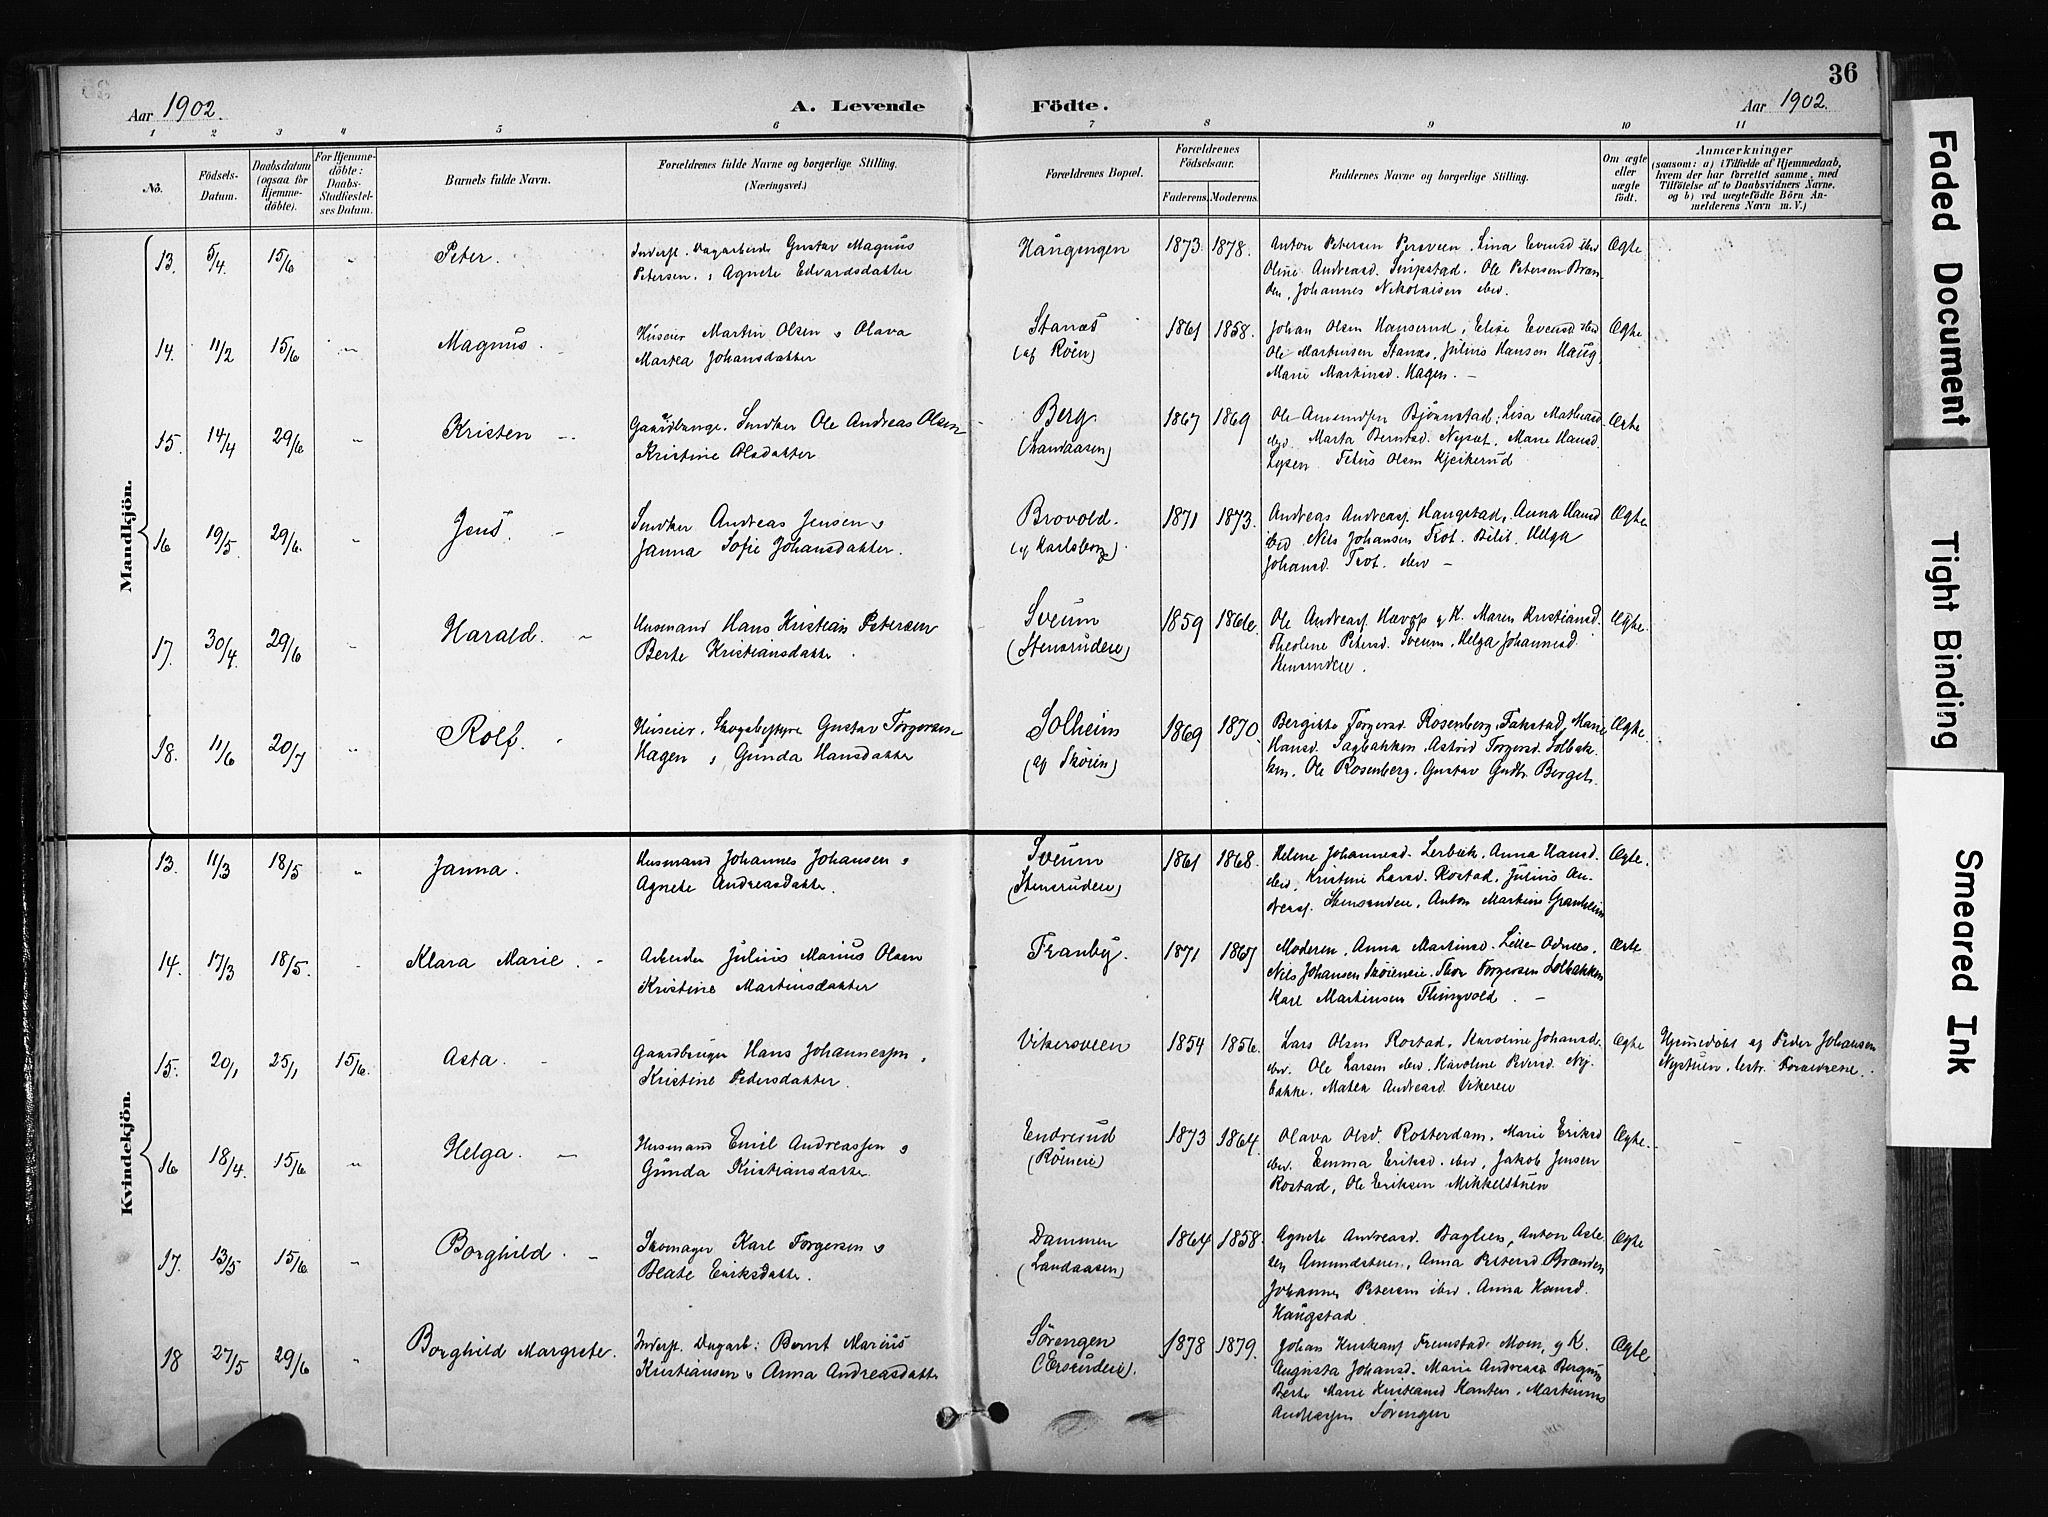 36
Aar 1902.
A. Levende Födte.
Aar 1902.
1 2 3 4 5 6 7 8 9 10 11
No.
Födsels-Datum.
Daabsdatum (ogsaa for Hjemme-döbte).
For Hjemme-döbte: Daabs-Stadfæstel-ses Datum.
Barnets fulde Navn.
Forældrenes fulde Navne og borgerlige Stilling.
(Næringsvei.)
Forældrenes Bopæl.
Forældrenes Födselsaar.
Faderens. Moderens.
Faddernes Navne og borgerlige Stilling.
Om ægte eller uægte födt.
Anmærkninger
(saasom: a) i Tilfælde af Hjemmedaab,
hvem der har forrettet samme, med
Tilföielse af to Daabsvidners Navne,
og b) ved uægtefödte Börn An-
melderens Navn m. V.)
Mandkjön.
13. 5/4. 15/6 " Peter.
Inderst. Dagarbeide Gustav Magnus
Petersen. : Agnete Edvardsdatter
Haugengen 1873 1878.
Anton Petersen Persveen. Lina Evensd ibid
Oline Andreasd. Ole Petersen Bran-
den, Johannes Nikolaisen ibid.
Ægte
14. 11/2 15/6 " Magnus.
Huseier Martin Olsen & Olava
Martea Johansdatter
Stanæs
(af Röen)
1861 1858.
Johan Olsen Hanserud, Elise Evensd ibid
Ole Martinsen Stanæs, Julius Hansen Haug,
Marie Martinsd. Hagen. –
Ægte
15. 14/4 29/6 " Kristen
Gaardbruge. Smther Ole Andreas Olsen
Kristine Olsdatter
Berg
(Landaasen)
1867 1869
Ole Amundsen Bjönnstad, Lisa Mathiasd
ibid Marta Berntsd. Marie Hansd.
Olsen
Ægte
16 19/5. 29/6. " Jens.
Smther Andreas Jensen &
Janna Sofie Johansdatter.
Brovold.
(af Karlsborg).
1871 1873.
Andreas Andreas. Haugstad, Anna Hansd
ibid Nils Johansen Helga
Johansd. ibid –
Ægte
17. 30/4. 29/6 " Harald.
Husmand Hans Kristian Petersen
Berte Kristiansdatte.
Sveum
(Stensrudeie)
1859 1866.
Ole Andreas. g K. Maren Kristiansd.
Petersd. Sveum, Helga Johannesd
Stensrudeie.
Ægte.
18. 11/6 20/7 " Rolf.
Huseier, Skogsbestyre Gustav Torgersen
Hagen & Gunda Hansdatter
Solheim
(af Sköien)
1869 1870.
Bergitte Torgersd Rosenberg, Fakstad, Marie
Hansd. Sagbakken, Astrid Torgersd. Solbak-
ken, Ole Rosenberg, Gustav Gudb. Berget.
Ægte.
Kvindekjön.
13. 11/3 18/5 " Janna.
Husmand Johannes Johansen &
Agnete Andreasdatter.
Sveum
(Stensrudeie)
1861 1868.
Helene Johannesd. Lerbæk, Anna Hansd.
ibid, Kristine Larsd. Rostad, Julius An-
dreas. Stensrudeie, Anton Martins Granheim
Ægte.
14. 17/3 18/5. Klara Marie.
Arbeider Julius Marius Olsen
Kristine Martinsdatter
Tranby. 1871 1867
Moderen, Anna Martinsd. Lille Odnæs,
Nils Johansen Sköieneie, Thor Torgersen Solbakken
Karl Martinsen Flingvold. –
Ægte
15. 20/1 25/1 15/6. Asta.
Gaardbruger Hans Johannessen,
Kristine Pedersdatter.
Vikersveen 1854 1856.
Lars Olsen Rostad, Karoline Johansd.
ibid. Ole Larsen ibid, Karoline Pedersd. Ny-
bakke, Mathea Andreasd. Vikereie
Ægte
Hjemmedöbt af Peder Johansen
Nystuen, Forældrene.
16 18/4. 15/6 " Helga.
Husmand Emil Andreassen &
Gunda Kristiansdatte.
Endrerud
(Röeneie)
1873 1864.
Olava Olsd. Rotterdam, Marie Eriksd
ibid. Emma Eriksd. ibid, Jakob Jensen
Rostad, Ole Eriksen Mikkelstuen
Ægte.
17. 13/5 15/6 " Borghild.
Skomager Karl Torgersen &
Beate Eriksdatte.
Dammen
(Landaasen)
1864 1858.
Agnete Andreasd. Baglien, Anton Asle-
sen Amundstuen, Anna Petersd Branden
Johannes Petersen ibid. Anna Hansd.
Haugstad.
Ægte
18 27/5 29/6 " Borghild Margrete.
Inderst. Dagarb: Bernt Marius
Kristiansen & Anna Andreasdatte
Sörengen
(Ersrudeie).
1878 1879.
Johan Fremstad. Mom, g K.
Augusta Johansd. Marie Andreasd Bergum
Berte Marie Kristiansd Kanten, Martinus
Andreassen Sörengen
Ægte
Faded Document
Tight Binding
Smeared Ink